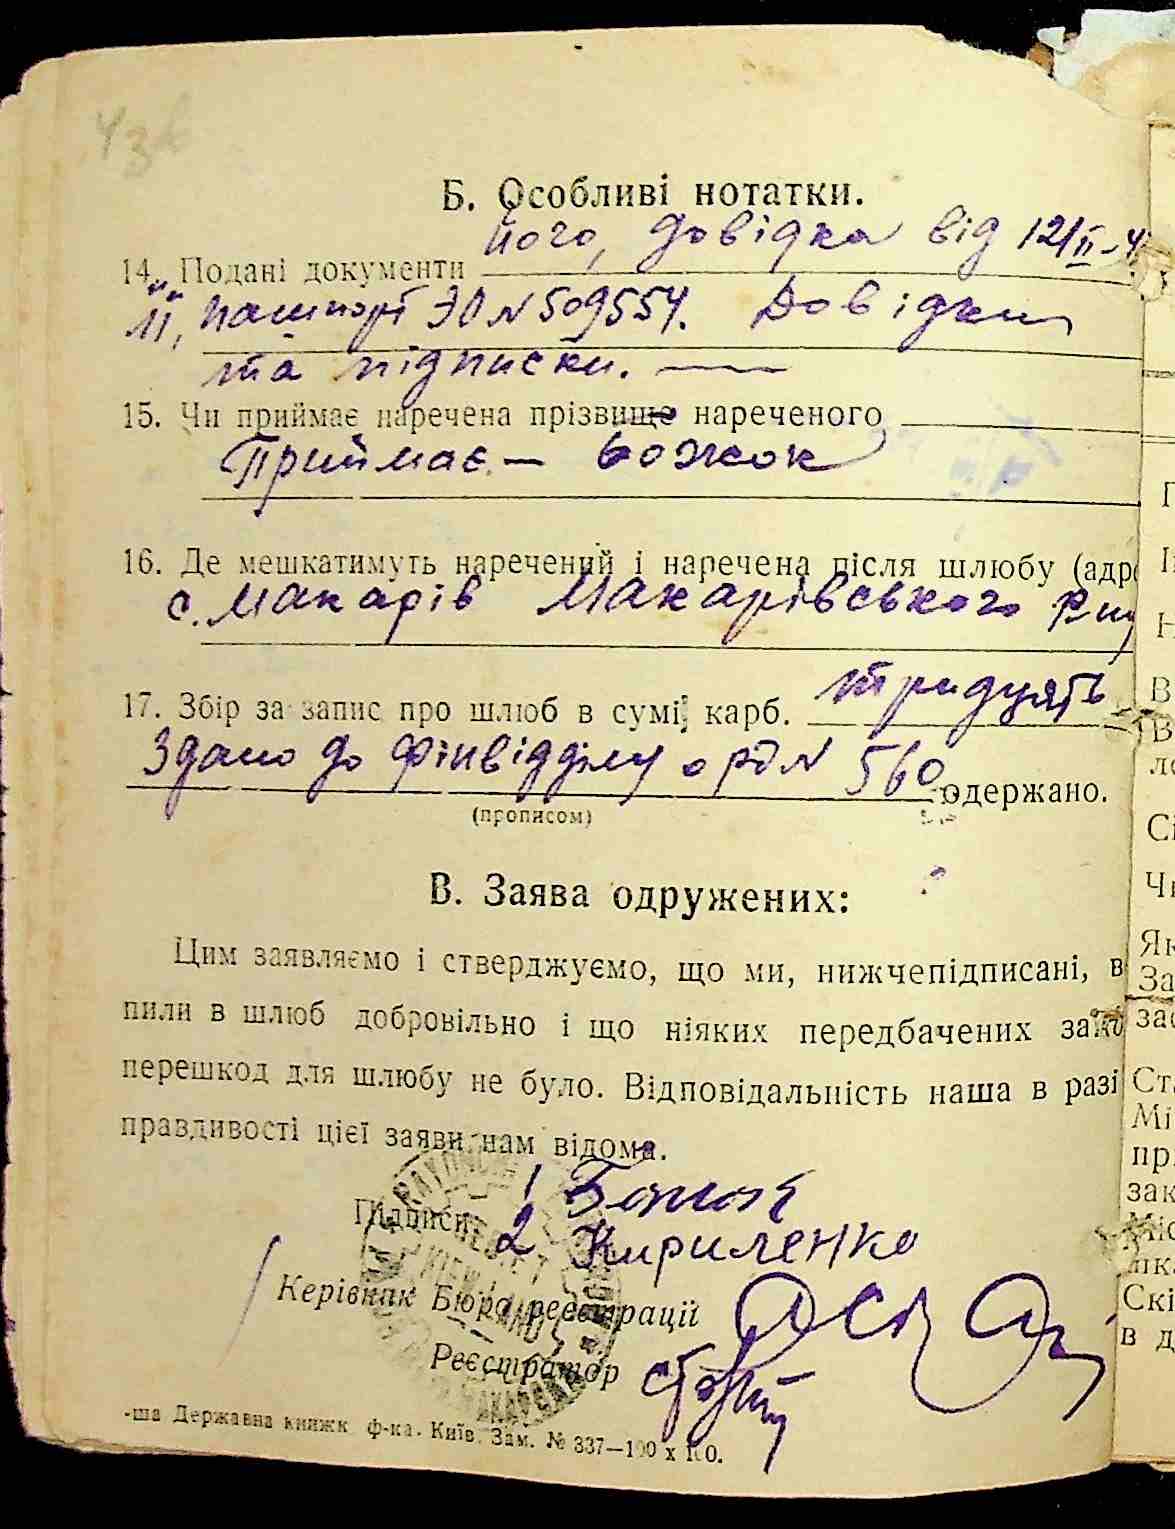 43в
Б. Особливі нотатки.
14. Подані документи його, довідка від 12/II-4
"її", пашпорт ЭО № 509554. Довідки
та підписки. —
15. Чи приймає наречена прізвище нареченого
Приймає — Божок
16. Де мешкатимуть наречений і наречена після шлюбу (адре
с. Макарів Макарівського р-ну
17. Збір за запис про шлюб в сумі, карб. тридцять
Здано до фінвідділу о рд № 560 одержано.
(прописом)
В. Заява одружених:
Цим заявляємо і стверджуємо, що ми, нижчепідписані, в
пили в шлюб добровільно і що ніяких передбачених зако
перешкод для шлюбу не було. Відповідальність наша в разі
правдивості цієї заяви нам відома.
Підписи: 1 Божок
2 Кириленко
Керівник Бюра реєстрації
Реєстратор
-ша Державна книжк. ф-ка. Київ. Зам. № 337—100 х К0.
В
В
Сі
Чи
Як
За
зас
Ст
Мі
пр
зак
Міс
Скі
в д